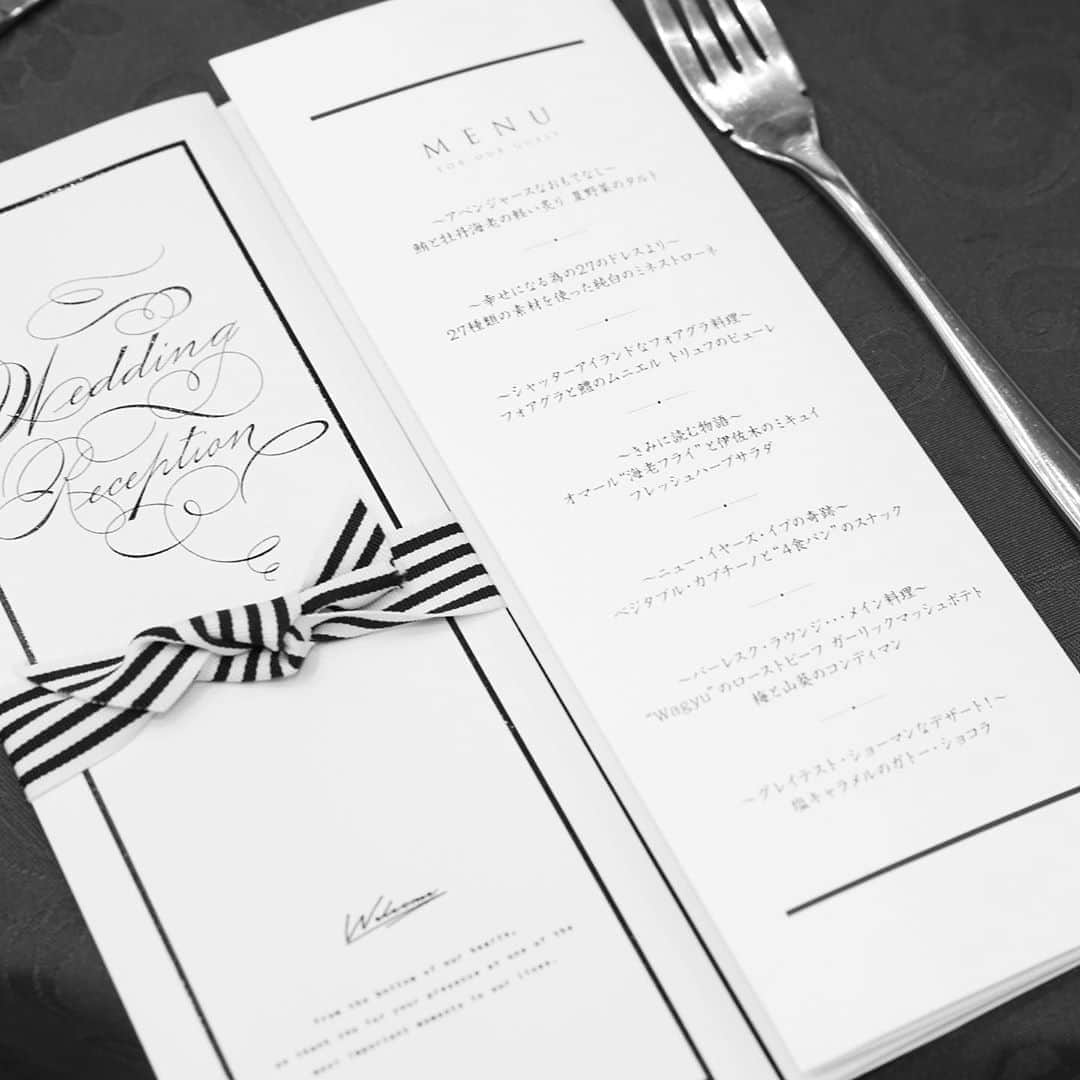 Wedding
Reception
Welcome
from the bottom of our hearts,
we thank you for your presence at one of the
most important moments in our lives.
MENU
FOR OUR GUEST
～アベンジャーズなおもてなし～
鮪と牡丹海老の軽い炙り 夏野菜のタルト
～幸せになる為の27のドレスより～
27種類の素材を使った純白のミネストローネ
～シャッターアイランドなフォアグラ料理～
フォアグラと鱧のムニエル トリュフのピューレ
～きみに読む物語～
オマール“海老フライ”と伊佐木のミキュイ
フレッシュハーブサラダ
～ニュー・イヤーズ・イブの奇跡～
ベジタブル・カプチーノと“4食パン”のスナック
～バーレスク・ラウンジ・・・メイン料理～
“Wagyu”のローストビーフ ガーリックマッシュポテト
梅と山葵のコンディマン
～グレイテスト・ショーマンなデザート！～
塩キャラメルのガトー・ショコラ